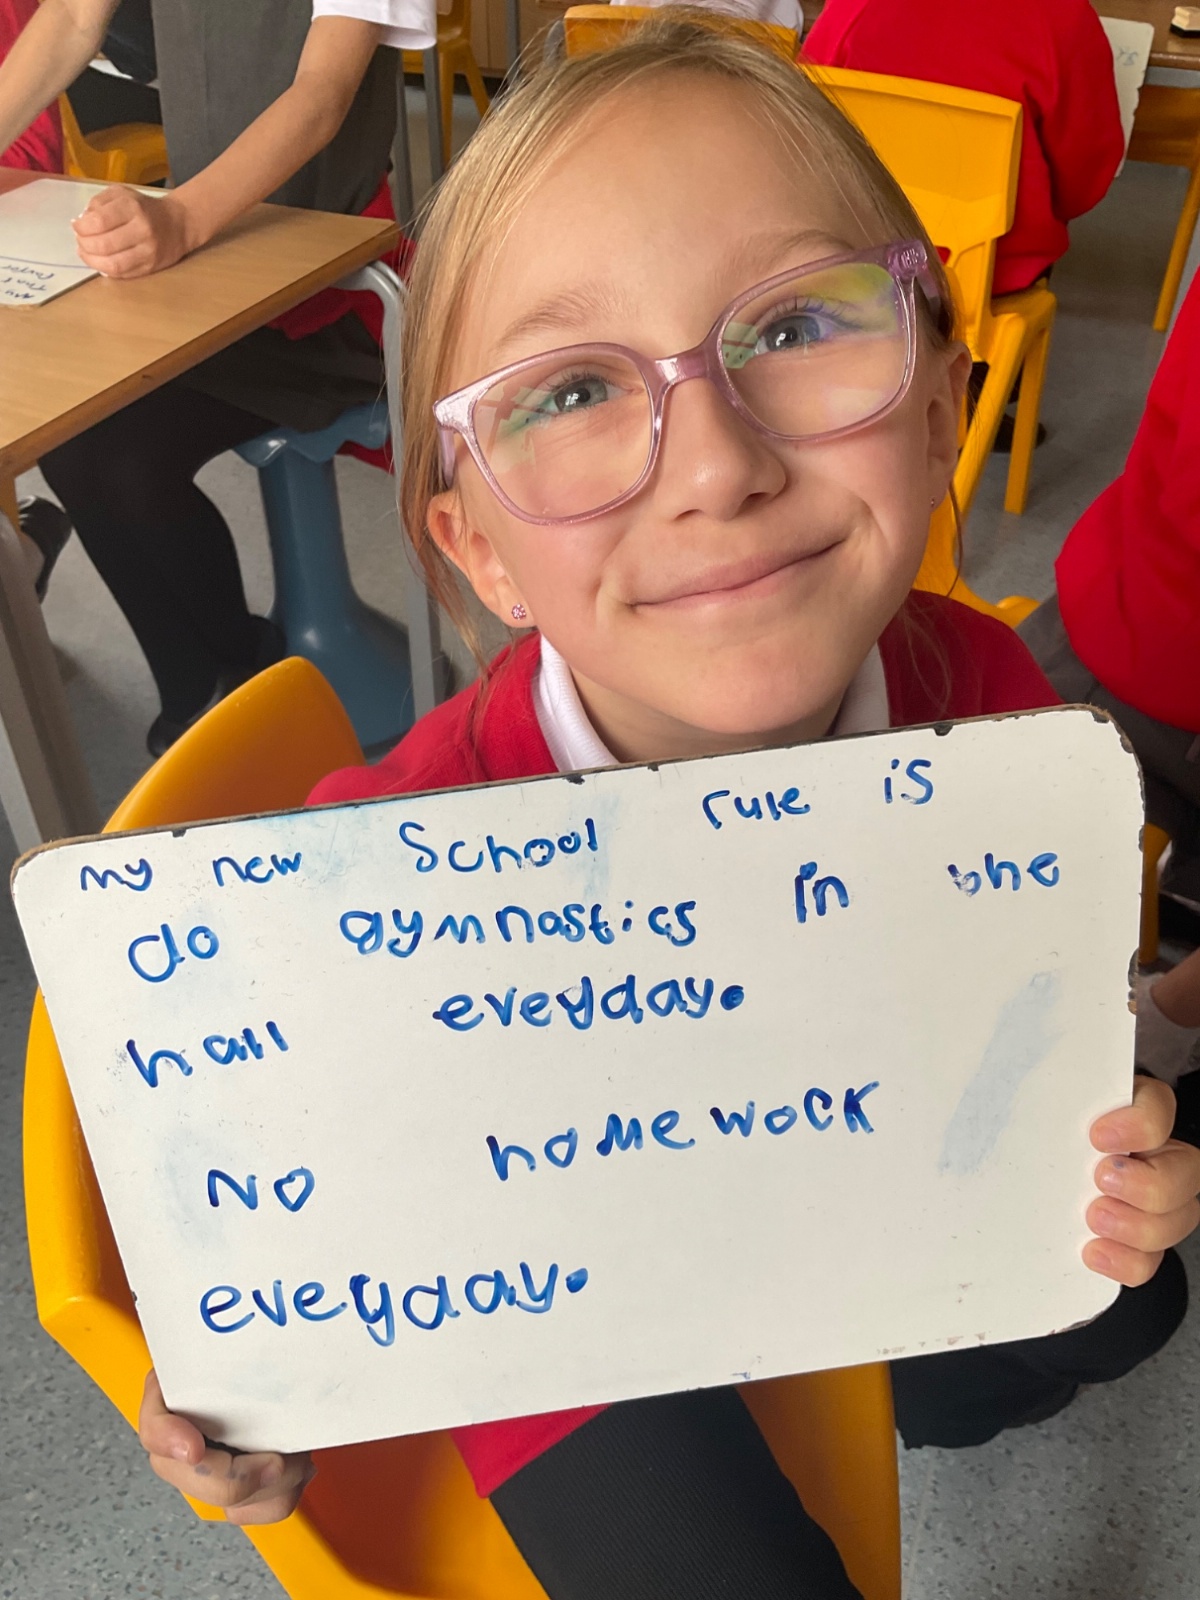 my new School rule is
do gymnastics in the
hall eveyday.
No homework
eveyday.